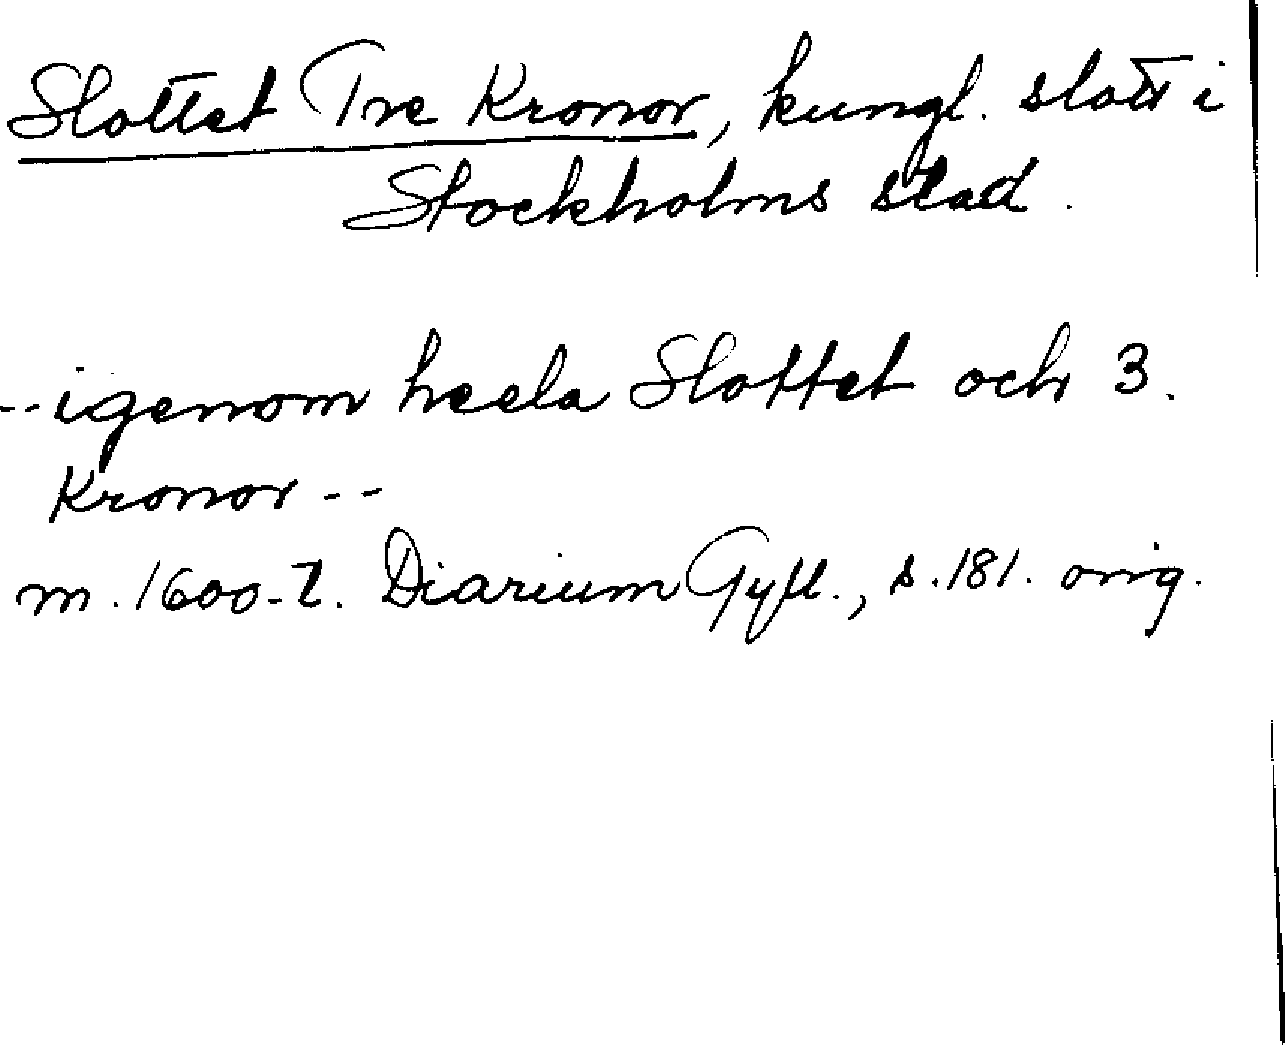 Slottet Tre Kronor, kungl. slott i
Stockholms stad.
--igenom heela Slottet och 3.
Kronor --
m. 1600-t. Diarium Gyll., s. 181. orig.